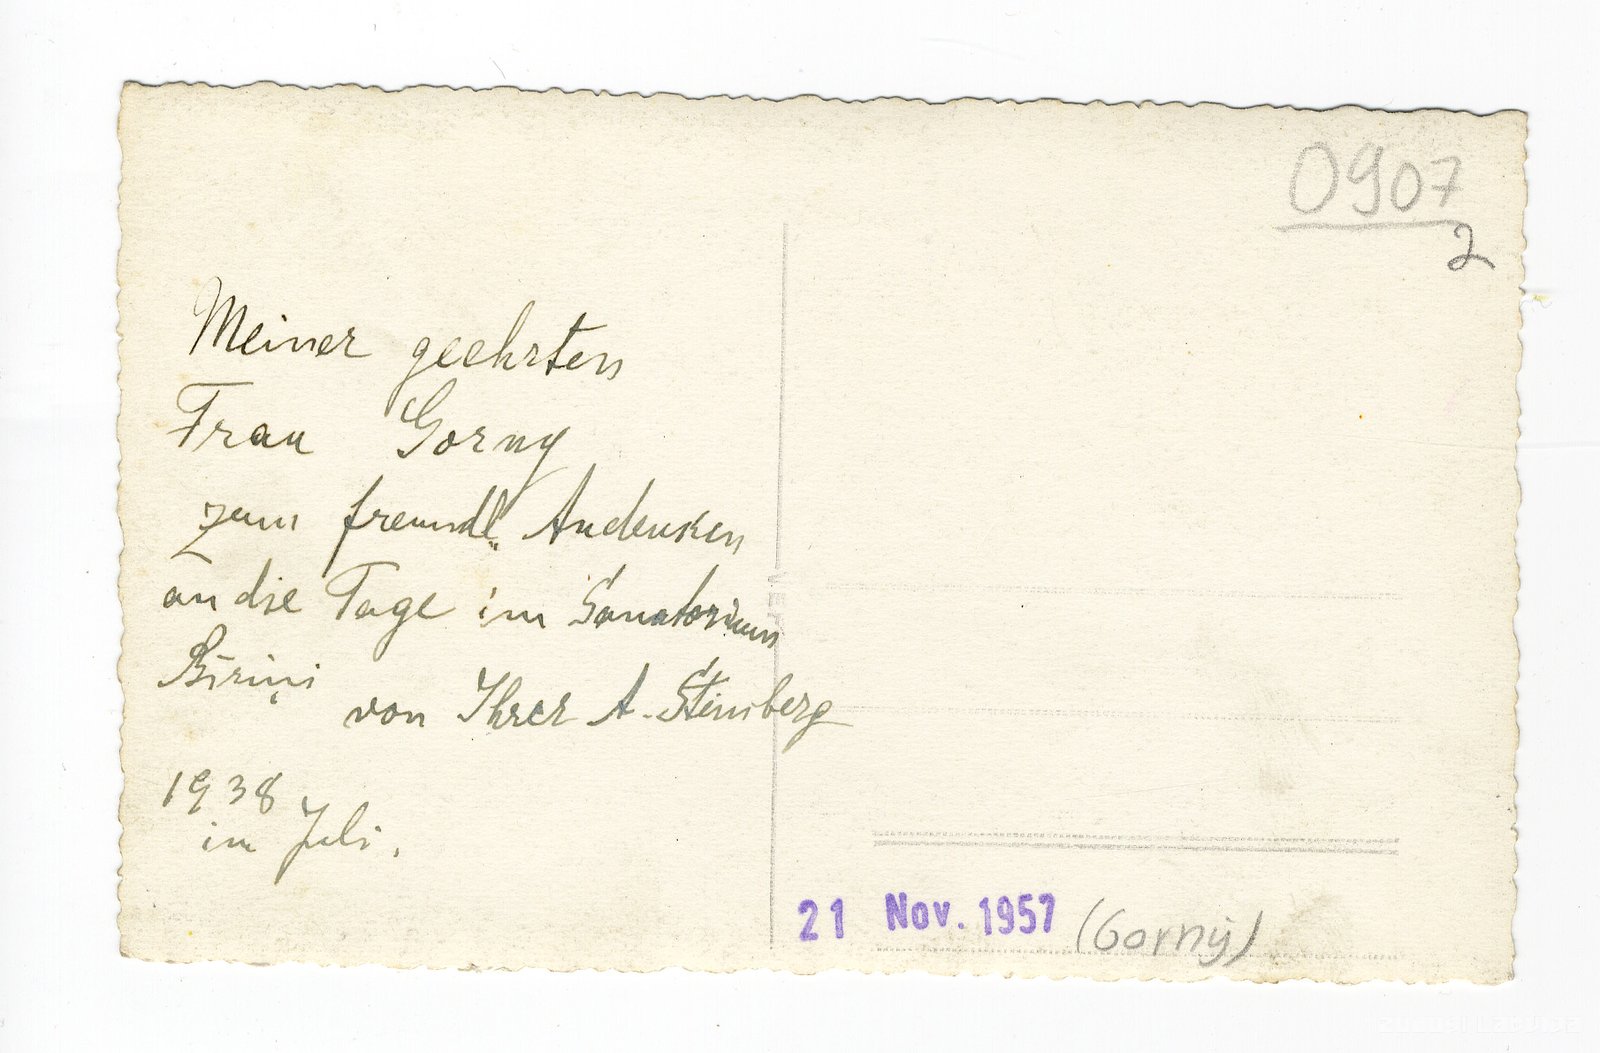 0907
2
Meiner geehrten
Frau Gorny
zum freundl. Andenken
an die Tage im Sanatorium
Bīriņi
von Ihrer A. Steinberg
1938
im Juli.
21 Nov. 1957 (Gorny)